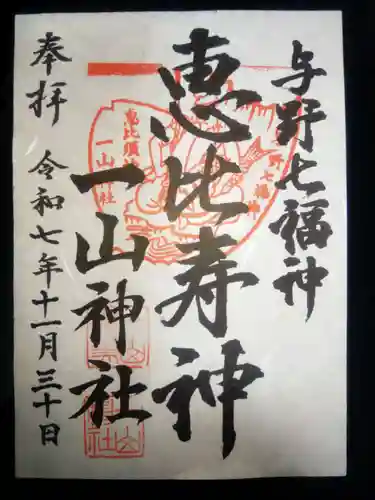 与野七福神
恵比寿神
一山神社
奉拝 令和七年十一月三十日
恵比須神
一山神社
野七福神